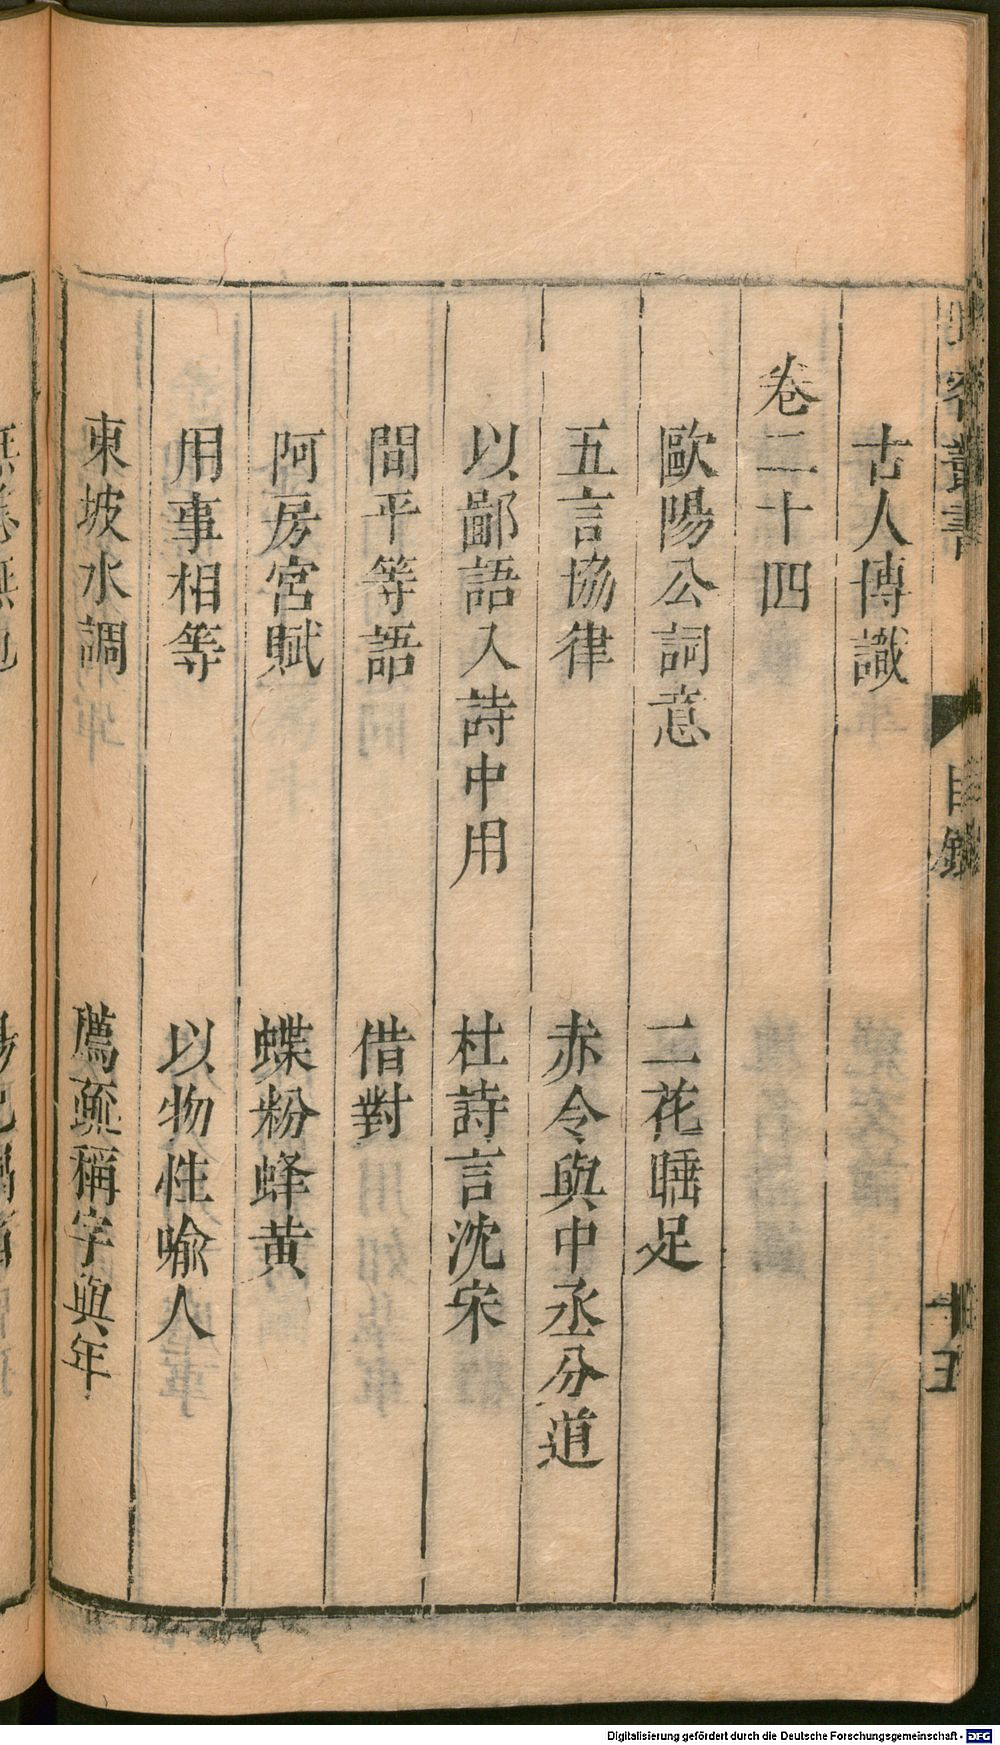 野客叢書
目錄
十五
古人博識
卷二十四
歐陽公詞意　二花睡足
五言協律　赤令與中丞分道
以鄙語入詩中用　杜詩言沈宋
間平等語　借對
阿房宮賦　蝶粉蜂黃
用事相等　以物性喻人
東坡水調　薦疏稱字與年
Digitalisierung gefördert durch die Deutsche Forschungsgemeinschaft - DFG